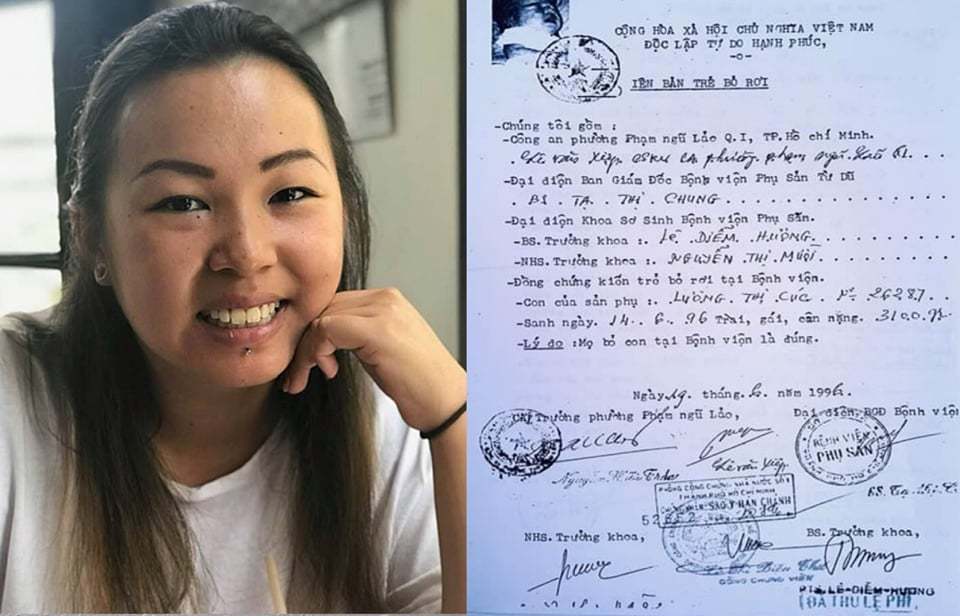 CỘNG HÒA XÃ HỘI CHỦ NGHĨA VIỆT NAM
ĐỘC LẬP TỰ DO HẠNH PHÚC,
-o-
IÊN BẢN TRẺ BỎ RƠI
-Chúng tôi gồm :
-Công an phường Phạm ngũ Lão Q.I, TP.Hồ chí Minh.
Lê văn Hiệp phường phạm ngũ Lão Q1
-Đại diện Ban Giám Đốc Bệnh viện Phụ Sản Từ Dũ
BS TẠ THỊ CHUNG
-Đại diện Khoa Sơ Sinh Bệnh viện Phụ Sản.
-BS.Trưởng khoa : LÊ DIỄM HƯƠNG
-NHS.Trưởng khoa : NGUYỄN THỊ MƯỜI
-Đồng chứng kiến trẻ bỏ rơi tại Bệnh viện.
-Con của sản phụ : LƯƠNG THỊ CÚC Nº 26287
-Sanh ngày. 14. 6. 96 Trai, gái, cân nặng. 3100
-Lý do :Mẹ bỏ con tại Bệnh viện là đúng.
Ngày 19 tháng 6 năm 1996
CA Trưởng phường Phạm ngũ Lão, Đại diện BGĐ Bệnh việ
BỆNH VIỆN
PHỤ SẢN
Lê văn Hiệp
PHÒNG CÔNG CHỨNG NHÀ NƯỚC SỐ 1
THÀNH PHỐ HỒ CHÍ MINH
SAO Y BẢN CHÁNH
NHS.Trưởng khoa, BS.Trưởng khoa,
CÔNG CHỨNG VIÊN
LÊ-DIỄM-HƯƠNG
ĐÃ THU LỆ PHÍ